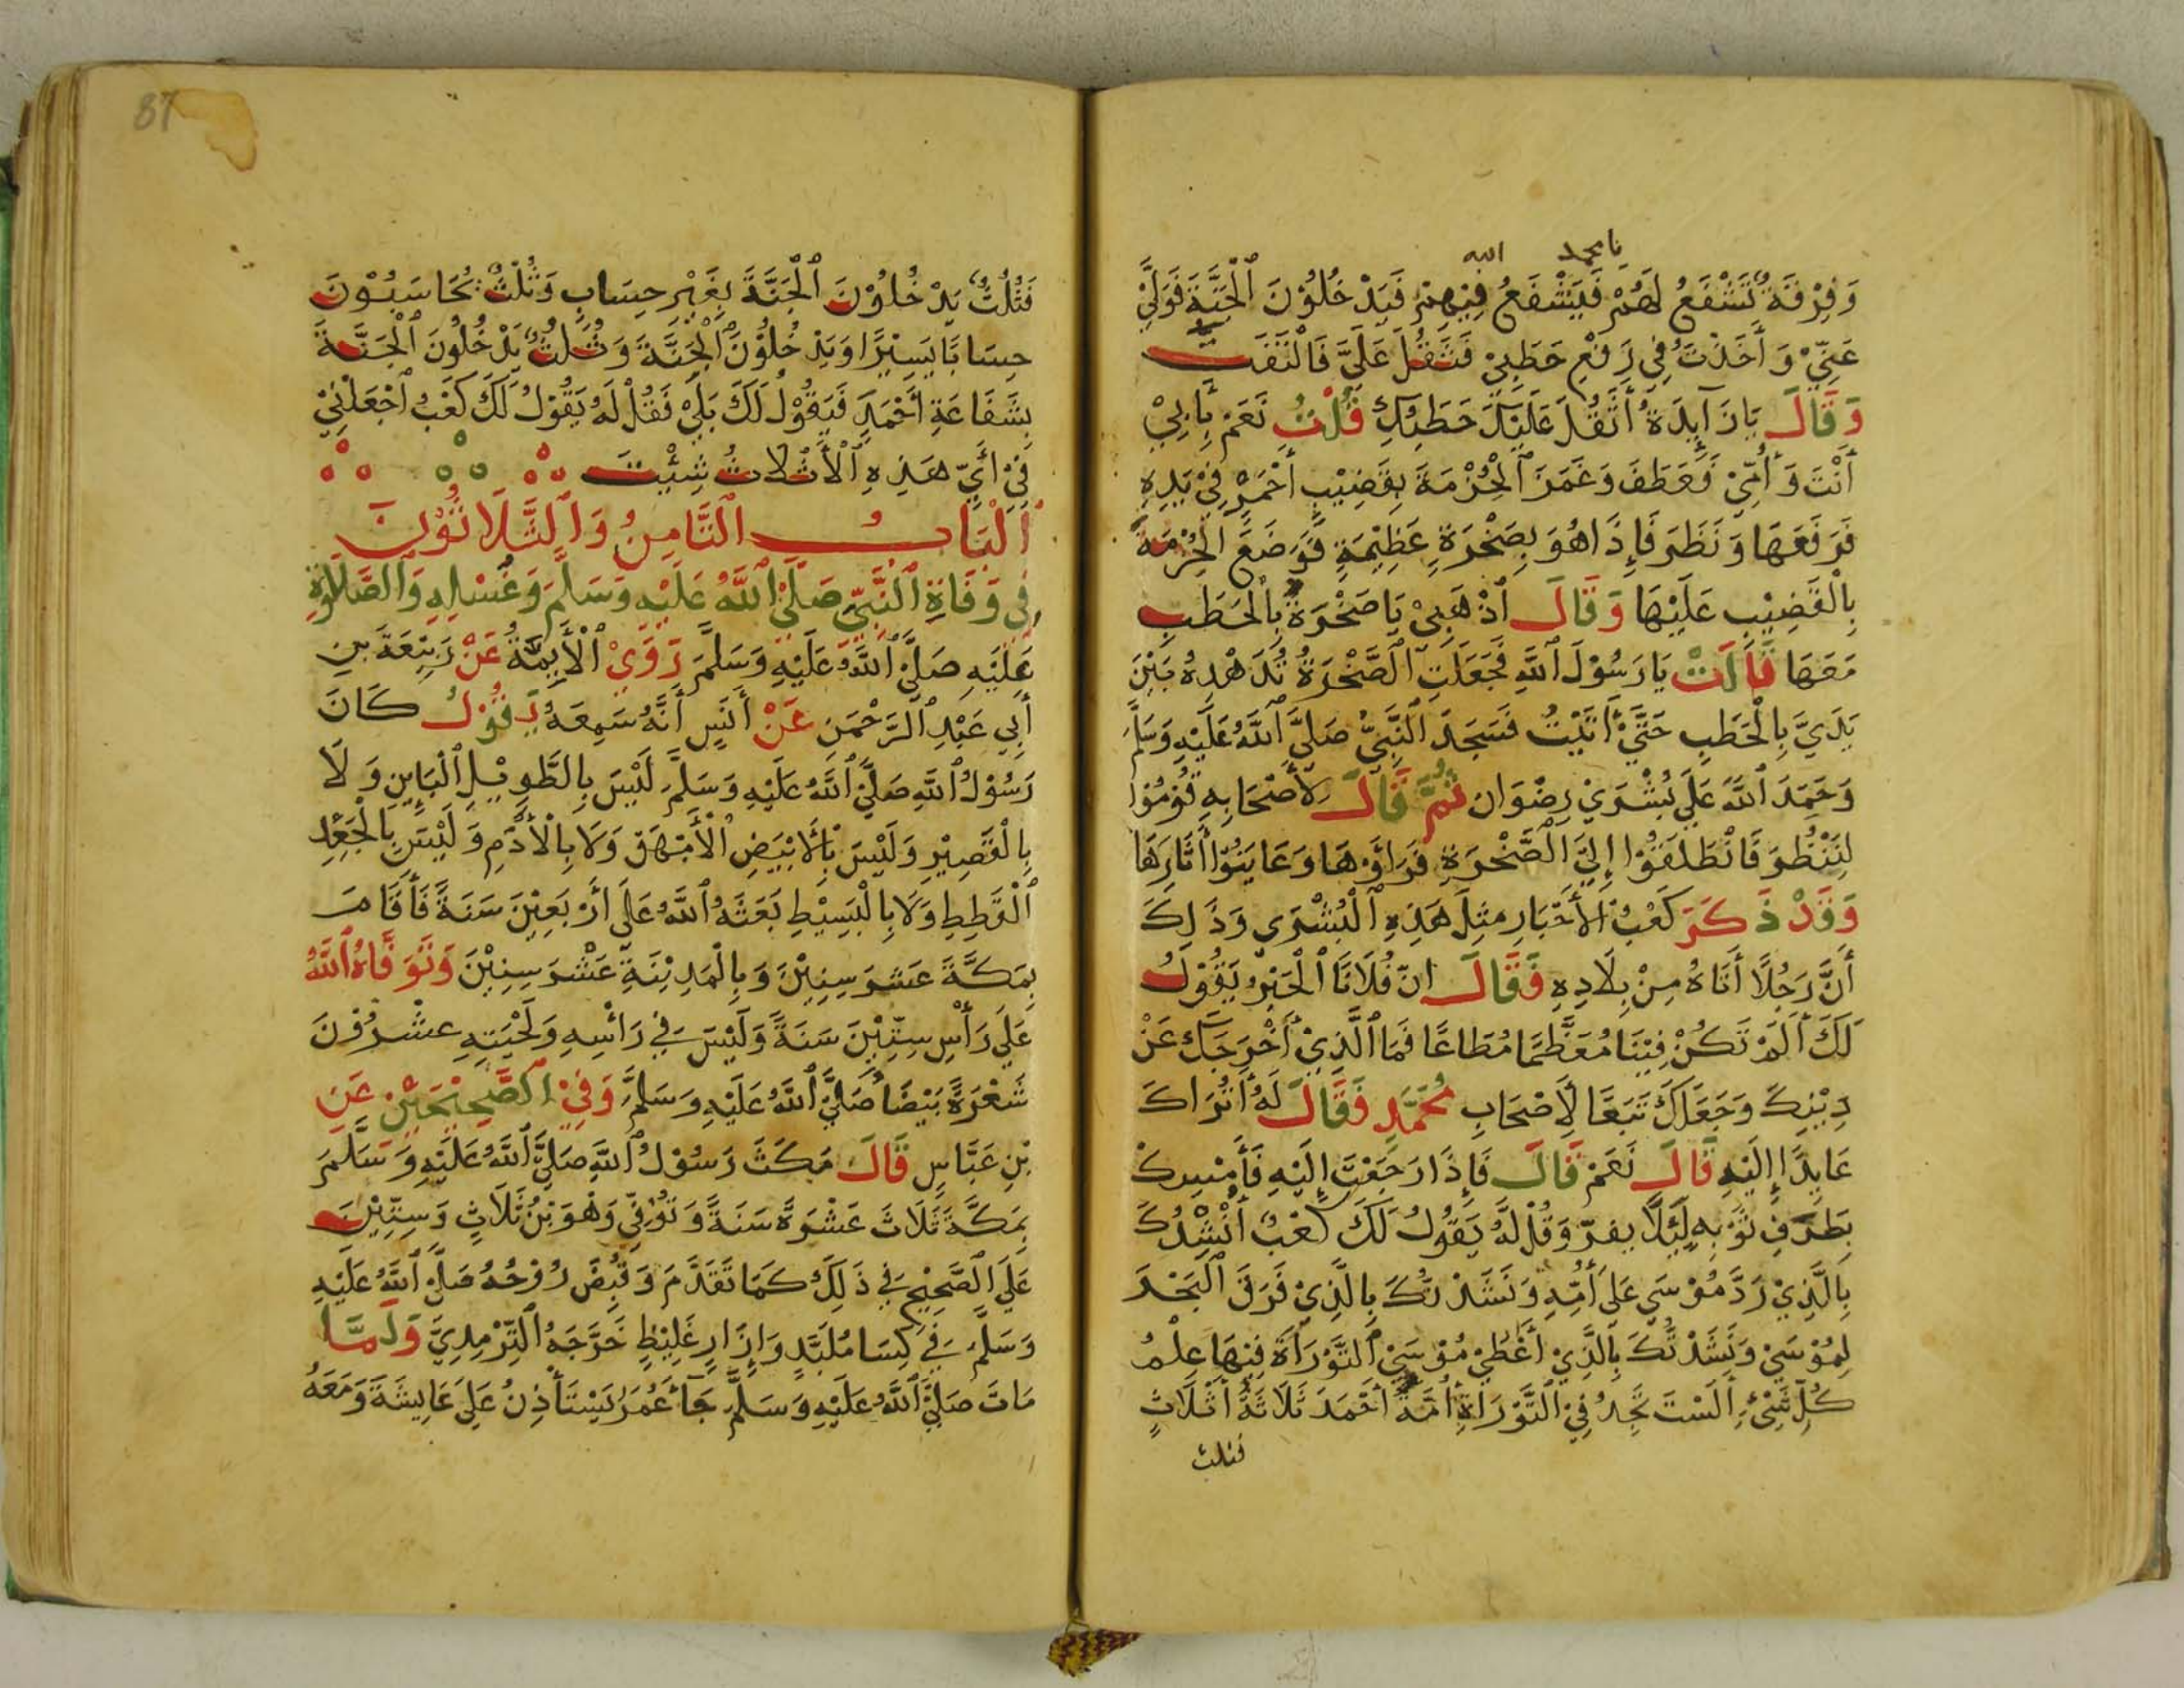 يامحمد الله
وَفِرْقَةٌ تَشْفَعُ لَهُمْ فَيَشْفَعُ فِيْهِمْ فَيَدْخُلُوْنَ ٱلْجَنَّةَ فَوَلَّيْ
عَنِّيْ وَأَخَذْتُ فِي رَفْعِ حَطَبِيْ فَثَقُلَ عَلَيَّ فَالْتَفَتَ
وَقَالَ يَا زَآيِدَةُ أَثَقُلَ عَلَيْكِ حَطَبُكِ قُلْتُ نَعَمْ بِأَبِيْ
أَنْتَ وَأُمِّيْ فَعَطَفَ وَغَمَزَ ٱلْحُزْمَةَ بِقَضِيْبٍ أَحْمَرْ فِيْ يَدِهِ
فَرَفَعَهَا وَنَظَرَ فَإِذَا هُوَ بِصَخْرَةٍ عَظِيْمَةٍ فَوَضَعَ الْحُزْمَةَ
بِالْقَضِيْبِ عَلَيْهَا وَقَالَ ٱذْهَبِيْ يَا صَخْرَةُ بِالْحَطَبِ
مَعَهَا قَالَتْ يَا رَسُوْلَ ٱللَّهِ فَجَعَلَتِ ٱلصَّخْرَةُ تُدَهْدِهُ بَيْنَ
يَدَيَّ بِالْحَطَبِ حَتَّيْ أَتَيْتُ فَسَجَدَ ٱلنَّبِيُّ صَلَّيَ ٱللَّهُ عَلَيْهِ وَسَلَّمَ
وَحَمِدَ ٱللَّهَ عَلَيَ بُشْرَيْ رِضْوَان ثُمَّ قَالَ لِأَصْحَابِهِ قُوْمُوْا
لِنَنْظُرَ فَانْطَلَقُوْا إِلَيَ ٱلصَّخْرَةِ فَرَاؤْهَا وَعَايَنُوْا أَثَارَهَا
وَقَدْ ذَكَرَ كَعْبُ ٱلأَحْبَارِ مِثِلَ هَذِهِ ٱلْبُشْرَي وَذَلِكَ
أَنَّ رَجُلًا أَتَاهُ مِنْ بِلَادِهِ فَقَالَ انّ فُلَانًا ٱلْحَبْرُ يَقُوْلُ
لَكَ أَلَمْ تَكُنْ فِيْنَا مُعَظَّمًا مُطَاعًا فَمَا ٱلَّذِيْ أَخْرَجَكَ عَنْ
دِيْنِكَ وَجَعَلَكَ تَبَعًا لِأَصْحَابِ مُحَمَّدٍ فَقَالَ لَهُ أَتُرَاكَ
عَايِدًا إِلَيْهِ قَالَ نَعَمْ قَالَ فَإِذَا رَجَعْتَ إِلَيْهِ فَأَمْسِكْ
بِطَرَفِ ثَوْبِهِ لِئَلَّا يفرّ وَقُلْ لَهُ يَقُوْلُ لَكَ كَعْبٌ أَنْشِدُكَ
بِالَّذِيْ رَدَّ مُوْسَي عَلَي أُمِّهِ وَنَشَدْتُكَ بِالَّذِيْ فَرَقَ ٱلْبَحْرَ
لِمُوْسَيْ وَنَشَدْتُكَ بِالَّذِيْ أَعْطَيْ مُوْسَيْ ٱلتَّوْرَاةَ فِيْهَا عِلْمُ
كُلِّ شَيْءٍ أَلَسْتَ تَجِدُ فِيْ ٱلتَّوْرَاةِ أُمَّةُ أَحْمَدَ ثَلَاثَةُ أَثْلَاثٍ
فثلث
87
فَثُلُثٌ يَدْخُلُوْنَ ٱلْجَنَّةَ بِغَيْرِ حِسَابٍ وَثُلُثٌ يُحَاسَبُوْنَ
حِسَابًا يَسِيْرًا وَيَدْخُلُوْنَ ٱلْجَنَّةَ وَثُلُثٌ يَدْخُلُونَ ٱلْجَنَّةَ
بِشَفَاعَةِ أَحْمَدَ فَيَقُوْلُ لَكَ بَلَيْ فَقُلْ لَهُ يَقُوْلُ لَكَ كَعْبُ ٱجْعَلْنِيْ
فِيْ أَيِّ هَذِهِ ٱلْأَثْلَاثِ شِئْتَ
ٱلْبَابُ ٱلثَّامِنُ وَٱلثَّلَاثُوْنَ
فِي وَفَاةِ ٱلنَّبِيِّ صَلَّيْ ٱللَّهُ عَلَيْهِ وَسَلَّمَ وَغُسْلِهِ وَٱلصَّلَاوةِ
عَلَيْهِ صَلَّيَ ٱللَّهُ عَلَيْهِ وَسَلَّمَ رَوَيْ ٱلْأَيِمَّةُ عَنْ رَبِيْعَةَ بْنِ
أَبِي عَبْدِ ٱلرَّحْمَنِ عَنْ أَنَسٍ أَنَّهُ سَمِعَهُ يَقُوْلُ كَانَ
رَسُوْلُ ٱللَّهِ صَلَّيَ ٱللَّهُ عَلَيْهِ وَسَلَّمَ لَيْسَ بِالطَّوِيْلِ ٱلْبَايِنِ وَلَا
بِالْقَصِيْرِ وَلَيْسَ بِٱلْأَبْيَضِ ٱلْأَمْهَقِ وَلَا بِالْأَدَمِ وَلَيْسَ بِالْجَعْدِ
ٱلْقَطِطِ وَلَا بِالْبَسِيْطِ بَعَثَهُ ٱللَّهُ عَلَي أَرْبَعِيْنَ سَنَةً فَأَقَامَ
بِمَكَّةَ عَشرَ سِنِيْنَ وَبِالْمَدِيْنَةِ عَشْرَ سِنِيْنَ وَتَوَفَّاهُ ٱللَّهُ
عَلَي رَأْسِ سِتِّيْنَ سَنَةً وَلَيْسَ فِي رَأْسِهِ وَلَحْيَتِهِ عشْرُوْنَ
شَعْرَةً بَيْضَأ صَلَّيَ ٱللَّهُ عَلَيْهِ وَسَلَّمَ وَفِيْ ٱلصَّحِيْحَيْنِ عَنِ
بْنِ عَبَّاسٍ قَالَ مَكَثَ رَسُوْلُ ٱللَّهِ صَلَّيَ ٱللَّهُ عَلَيْهِ وَسَلَّمَ
بِمَكَّةَ ثَلَاثَ عَشْرَةَ سَنَةً وَتُوُفِّيَ وَهْوَ بْنُ ثَلَاثٍ وَسِتِّيْنَ
عَلَي ٱلصَّحِيْحِ فِي ذَلِكَ كَمَا تَقَدَّمَ وَقُبِضَ رُوْحُهُ صَلَّيْ ٱللَّهُ عَلَيْهِ
وَسَلَّمَ فِي كِسَا مُلَبَّدٍ وَإِزَارٍ غَلِيْظٍ خَرَّجَهُ ٱلتِّرْمِذِيَّ وَلَمَّا
مَاتَ صَلَّيَ ٱللَّهُ عَلَيْهِ وَسَلَّمَ جَآءَ عُمَرُ يَسْتَأْذِنُ عَلَي عَايِشَةَ وَمَعَهُ